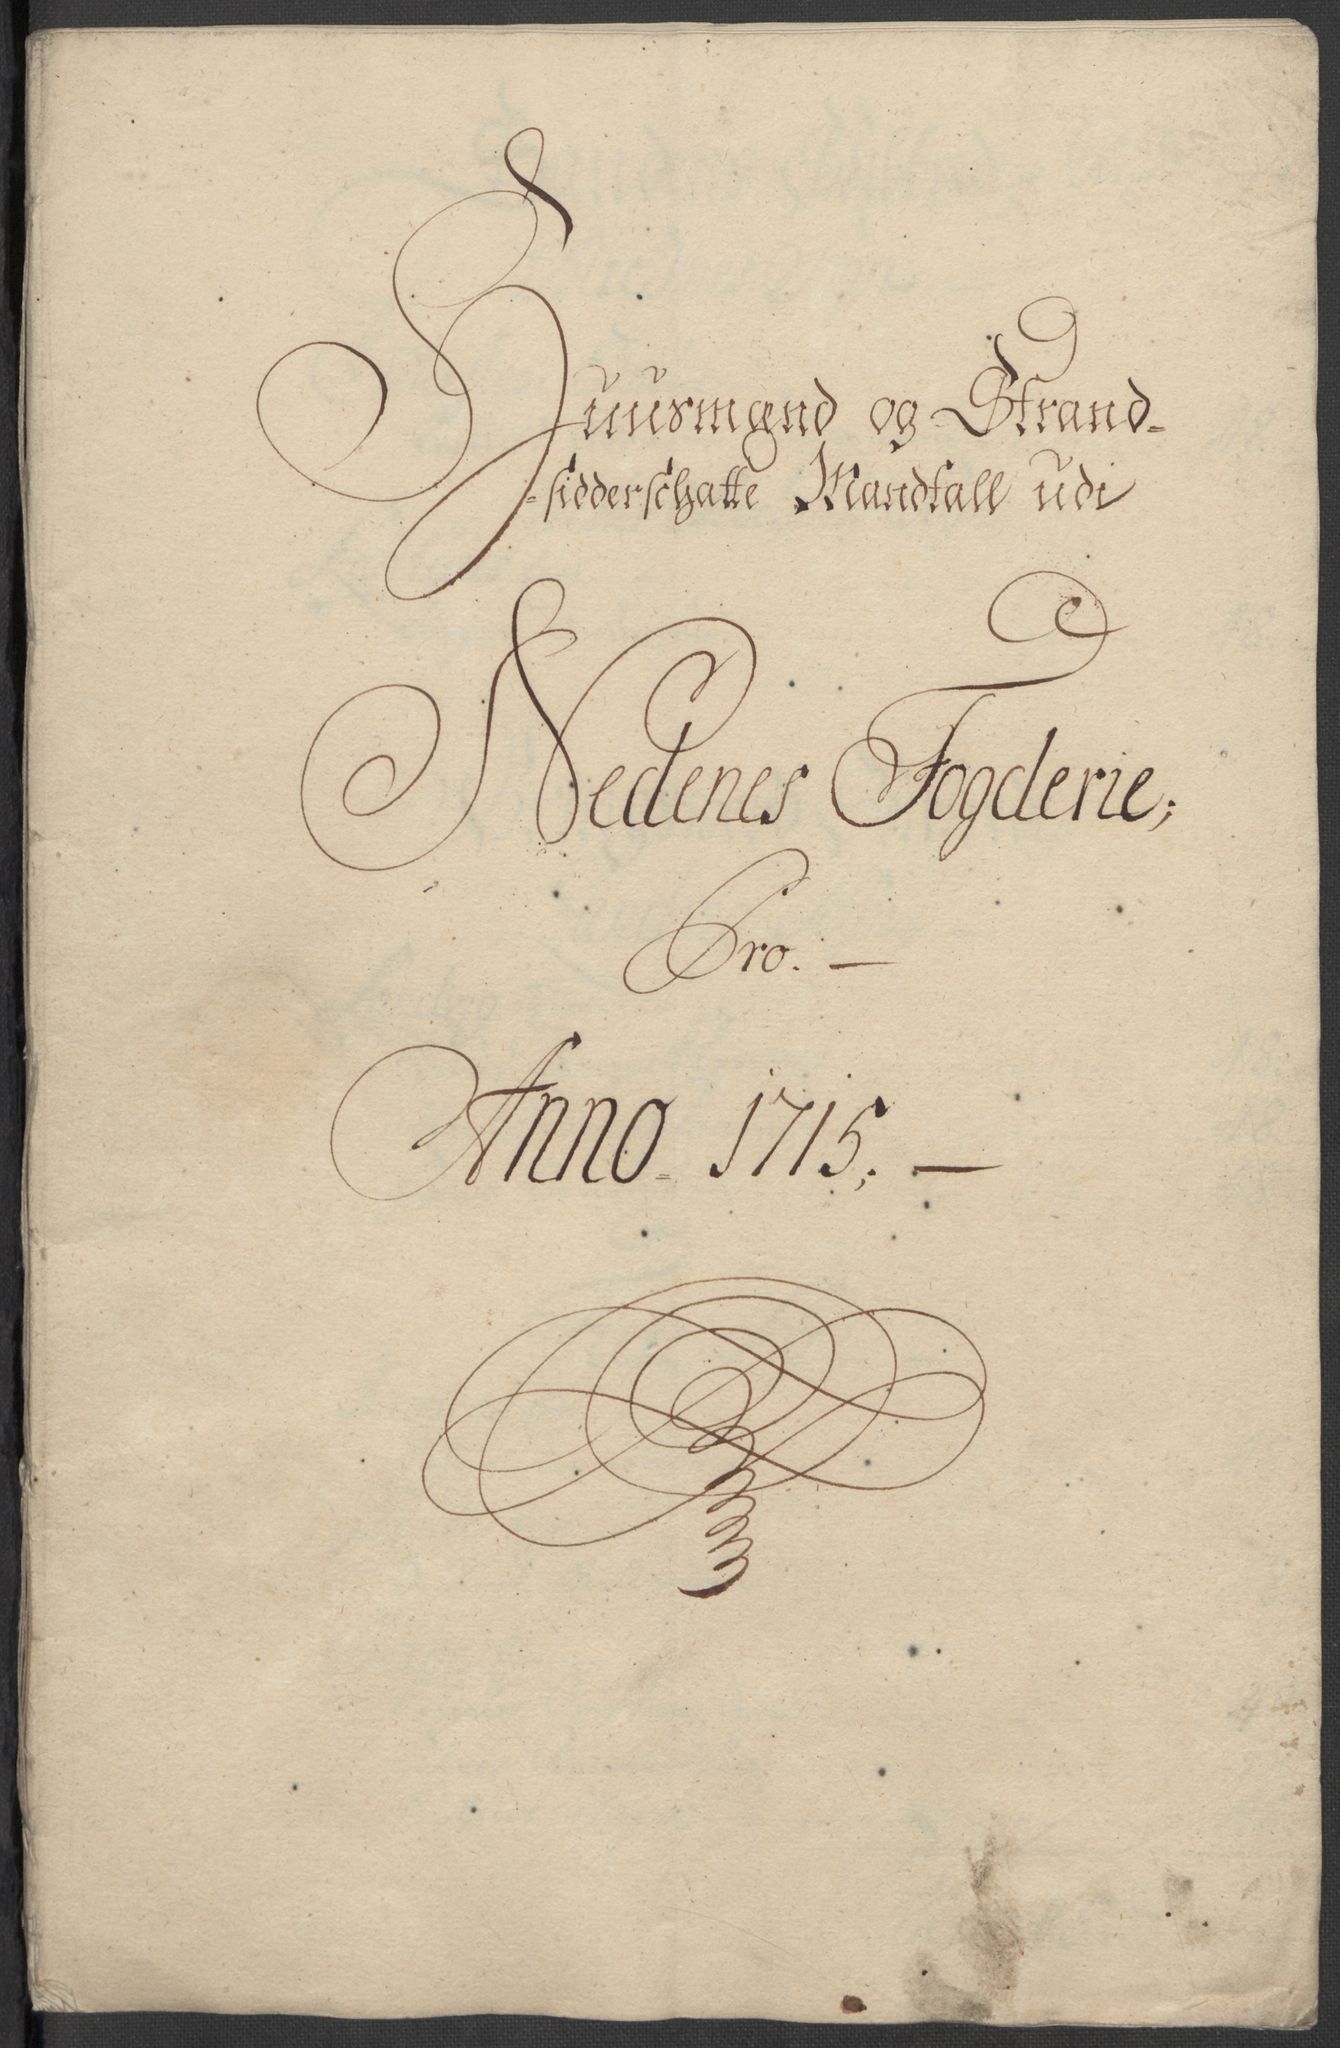 Huusmænd og Strand=
=sidderschatte Mandtall udi
Nedenes Fogderie;
Pro. —
Anno = 1715; —